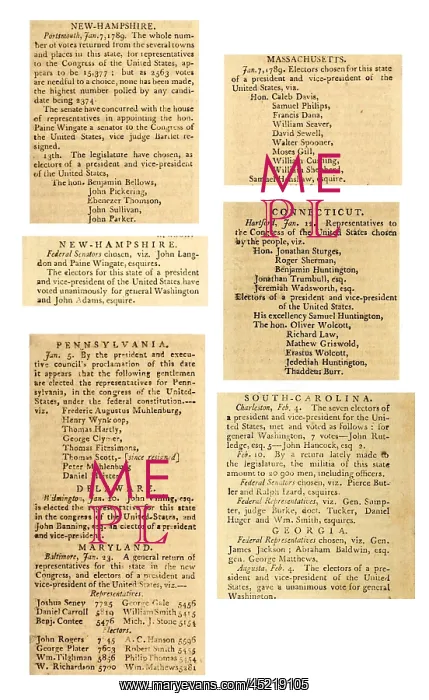 NEW-HAMPSHIRE.
Portsmouth, Jan. 7, 1789. The whole num-
ber of votes returned from the several towns
and places in this state, for representatives
to the Congress of the United States, ap-
pears to be 15,377; but as 2563 votes
are needful to a choice, none has been made,
the highest number polled by any candi-
date being 2374.
The senate have concurred with the house
of representatives in appointing the hon.
Paine Wingate a senator to the Congress of
the United States, vice judge Bartlet re-
signed.
13th. The legislature have chosen, as
electors of a president and vice-president of
the United States,
The hon. Benjamin Bellows,
John Pickering,
Ebenezer Thomson,
John Sullivan,
John Parker.
NEW-HAMPSHIRE.
Federal Senators chosen, viz. John Lang-
don and Paine Wingate, esquires.
The electors for this state of a president
and vice-president of the United States have
voted unanimously for general Washington
and John Adams, esquire.
PENNSYLVANIA.
Jan. 5. By the president and execu-
tive council's proclamation of this date
it appears that the following gentlemen
are elected the representatives for Penn-
sylvania, in the congress of the United-
States, under the federal constitution.---
viz. Frederic Augustus Muhlenburg,
Henry Wynkoop,
Thomas Hartly,
George Clymer,
Thomas Fitzsimons,
Thomas Scott,- [since resigned]
Peter Muhlenburg
Daniel
DELAWARE.
Wilmington, Jan. 10. John Vining, esq.
is elected the representative for this state
in the congress of the United-States, and
John Banning, esq. an elector of a president
and vice-president.
MARYLAND.
Baltimore, Jan. 23. A general return of
representatives for this state in the new
Congress, and electors of a president and
vice-president of the United States, viz.---
Representatives.
Joshua Seney 7725 George Gale 5456
Daniel Carroll 5819 William Smith 5415
Benj. Contee 5476 Mich. J. Stone 5154
Electors.
John Rogers A. C. Hanson 5596
George Plater 7603 Robert Smith
Wm. Tilghman 5836 Philip Thomas
W. Richardson 5700 Wm. Mathews 5281
MASSACHUSETTS.
Jan. 7, 1789. Electors chosen for this state
of a president and vice-president of the
United States, viz.
Hon. Caleb Davis,
Samuel Philips,
Francis Dana,
William Seaver,
David Sewell,
Walter Spooner,
Moses Gill,
William Cushing,
William
Samuel Henshaw, esquire.
CONNECTICUT.
Hartford, Jan. 12. Representatives to
the Congress of the United States chosen
by the people, viz.
Hon. Jonathan Sturges,
Roger Sherman,
Benjamin Huntington,
Jonathan Trumbull, esq.
Jeremiah Wadsworth, esq.
Electors of a president and vice-president
of the United States.
His excellency Samuel Huntington,
The hon. Oliver Wolcott,
Richard Law,
Mathew Griswold,
Erastus Wolcott,
Jedediah Huntington,
Thaddeus Burr.
SOUTH-CAROLINA.
Charleston, Feb. 4. The seven electors of
a president and vice-president for the Uni-
ted States, met and voted as follows: for
general Washington, 7 votes—John Rut-
ledge, esq. 5—John Hancock, esq. 2.
Feb. 10. By a return lately made to
the legislature, the militia of this state
amount to 20 900 men, including officers.
Federal Senators chosen, viz. Pierce But-
ler and Ralph Izard, esquires.
Federal Representatives, viz. Gen. Sump-
ter, judge Burke, doct. Tucker, Daniel
Huger and Wm. Smith, esquires.
GEORGIA.
Federal Representatives chosen, viz. Gen.
James Jackson; Abraham Baldwin, esq.
gen. George Matthews.
Augusta, Feb. 4. The electors of a pre-
sident and vice-president of the United
States, gave a unanimous vote for general
Washington.
ME
PL
ME
PL
www.maryevans.com/45219105